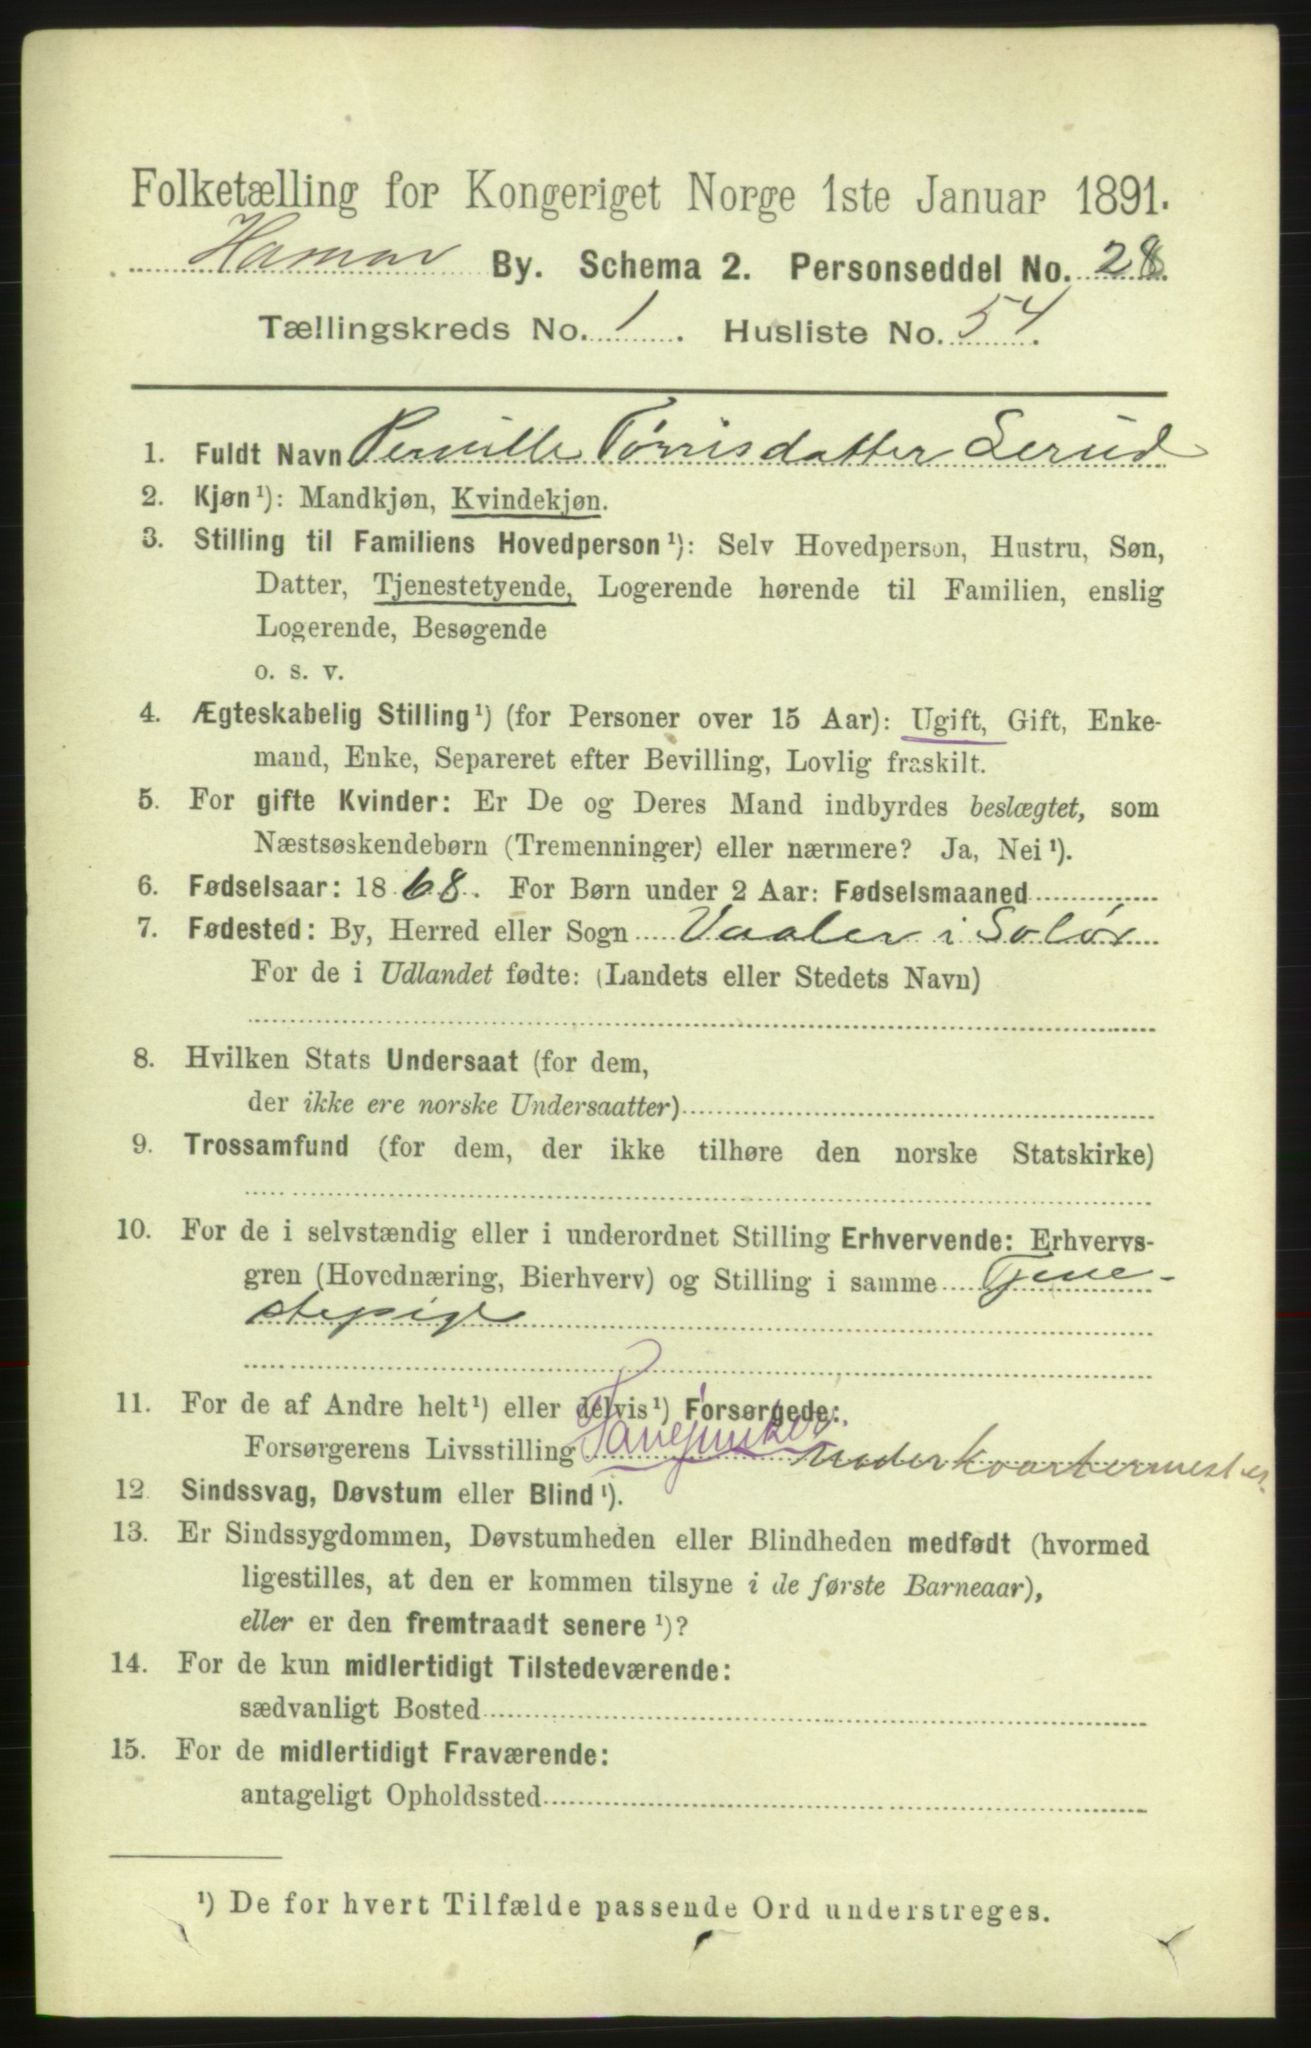 Folketælling for Kongeriget Norge 1ste Januar 1891.
Hamar By. Schema 2. Personseddel No. 28.
Tællingskreds No. 1. Husliste No. 54.
1. Fuldt Navn Pernille Tørrisdatter Lerud
2. Kjøn¹): Mandkjøn, Kvindekjøn.
3. Stilling til Familiens Hovedperson¹): Selv Hovedperson, Hustru, Søn,
Datter, Tjenestetyende, Logerende hørende til Familien, enslig
Logerende, Besøgende
o. s. v.
4. Ægteskabelig Stilling¹) (for Personer over 15 Aar): Ugift, Gift, Enke-
mand, Enke, Separeret efter Bevilling, Lovlig fraskilt.
5. For gifte Kvinder: Er De og Deres Mand indbyrdes beslægtet, som
Næstsøskendebørn (Tremenninger) eller nærmere? Ja, Nei¹).
6. Fødselsaar: 1868. For Børn under 2 Aar: Fødselsmaaned
7. Fødested: By, Herred eller Sogn Vaaler i Solør
For de i Udlandet fødte: (Landets eller Stedets Navn)
8. Hvilken Stats Undersaat (for dem,
der ikke ere norske Undersaatter)
9. Trossamfund (for dem, der ikke tilhøre den norske Statskirke)
10. For de i selvstændig eller i underordnet Stilling Erhvervende: Erhvervs-
gren (Hovednæring, Bierhverv) og Stilling i samme Tjene-
stepige
11. For de af Andre helt¹) eller delvis¹) Forsørgede:
Forsørgerens Livsstilling Fanejunker. Underkvartermester
12. Sindssvag, Døvstum eller Blind¹).
13. Er Sindssygdommen, Døvstumheden eller Blindheden medfødt (hvormed
ligestilles, at den er kommen tilsyne i de første Barneaar),
eller er den fremtraadt senere¹)?
14. For de kun midlertidigt Tilstedeværende:
sædvanligt Bosted
15. For de midlertidigt Fraværende:
antageligt Opholdssted
¹) De for hvert Tilfælde passende Ord understreges.